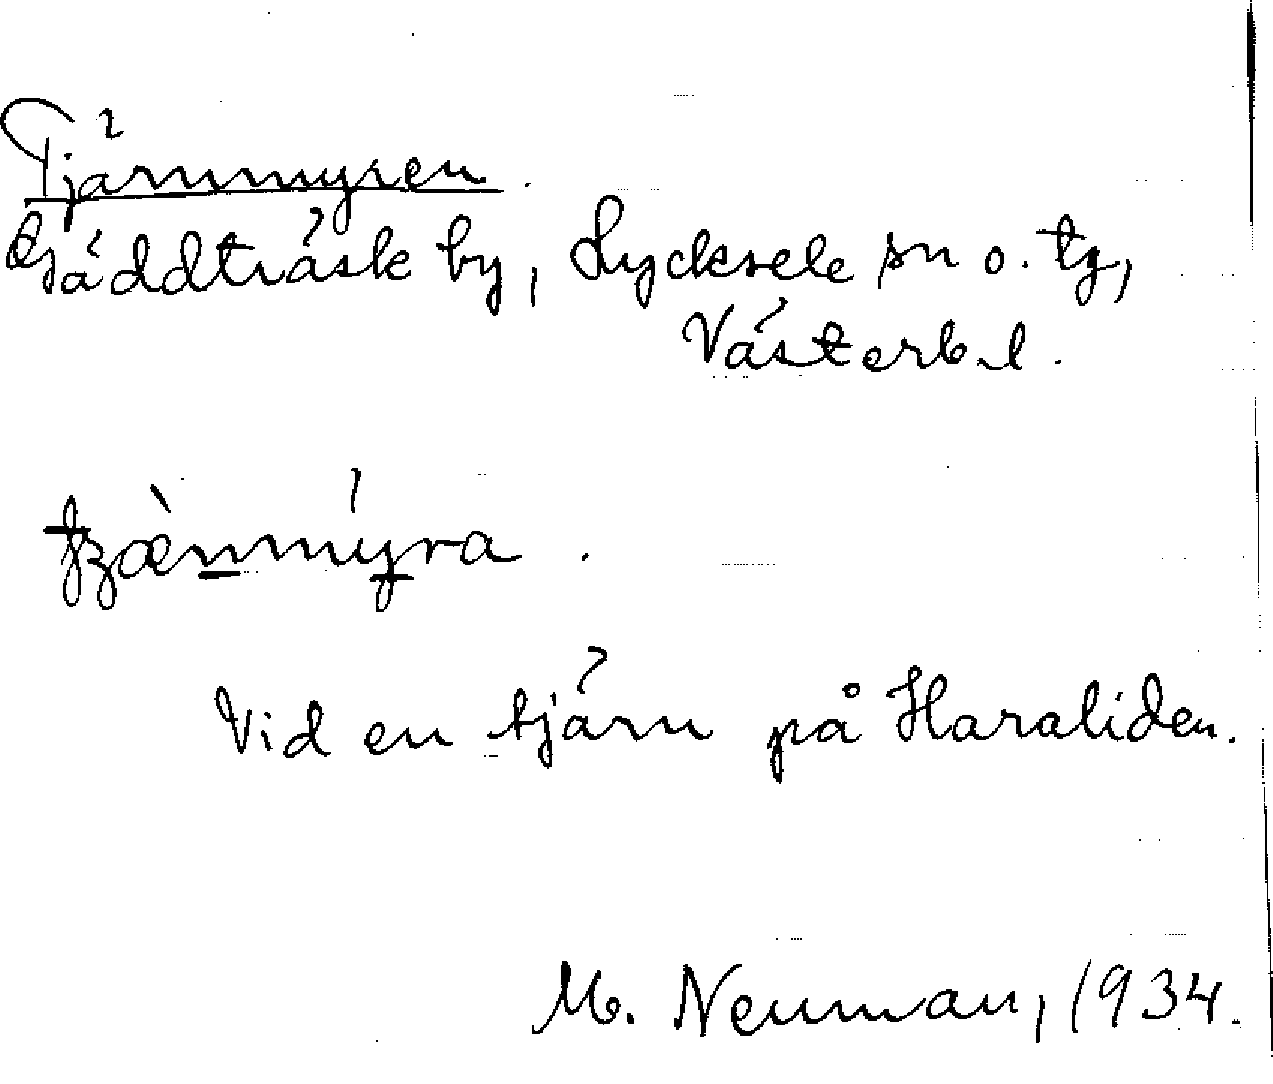 Tjärnmyren.
Gäddträsk by, Lycksele sn o. tg,
Västerb. l.
tʒæ̀nmýra.
Vid en tjärn på Haraliden.
M. Neuman, 1934.